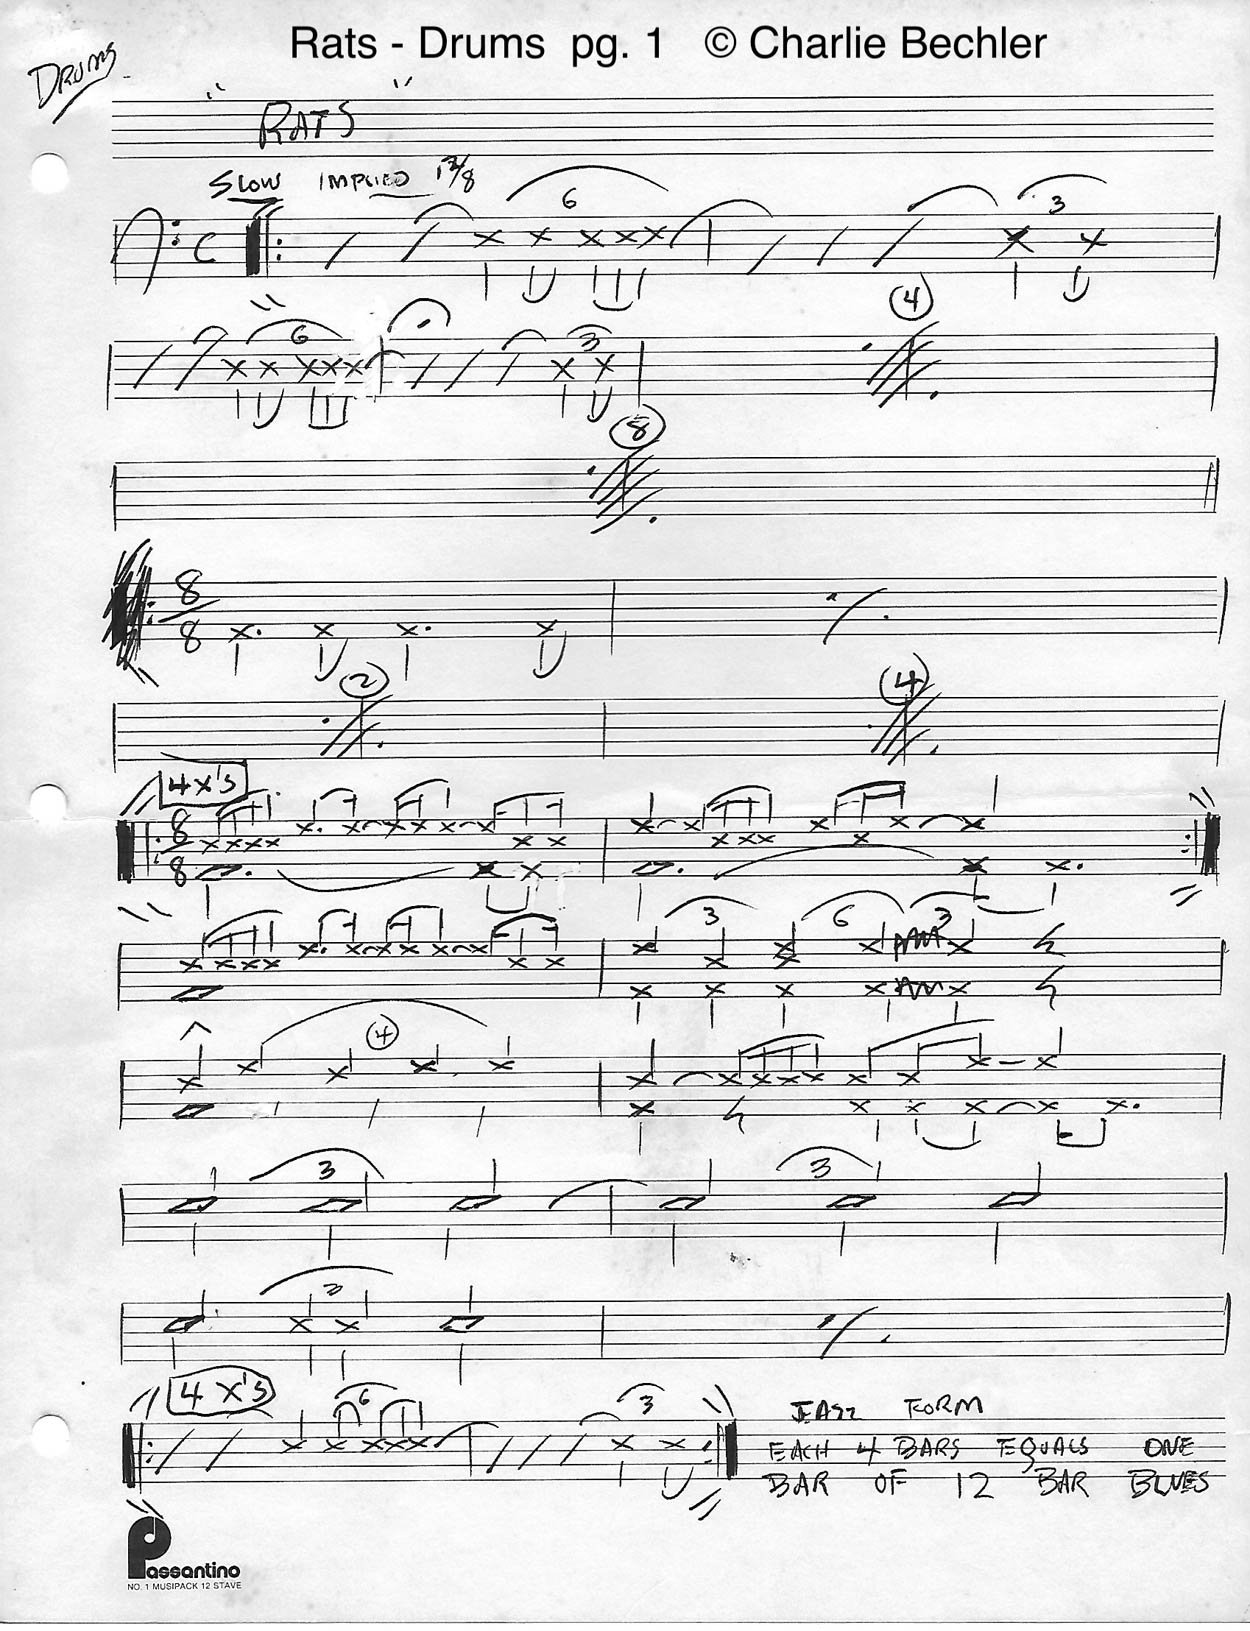 Rats - Drums pg. 1 © Charlie Bechler
DRUMS
" RATS "
SLOW IMPLIED 12/8
6
3
C
4
6
3
8
8
8
2
4
4 X'S
8
8
3 6 3
4
3 3
3
4 X'S
6
3
JAZZ FORM
EACH 4 BARS EQUALS ONE
BAR OF 12 BAR BLUES
Passantino
NO. 1 MUSIPACK 12 STAVE